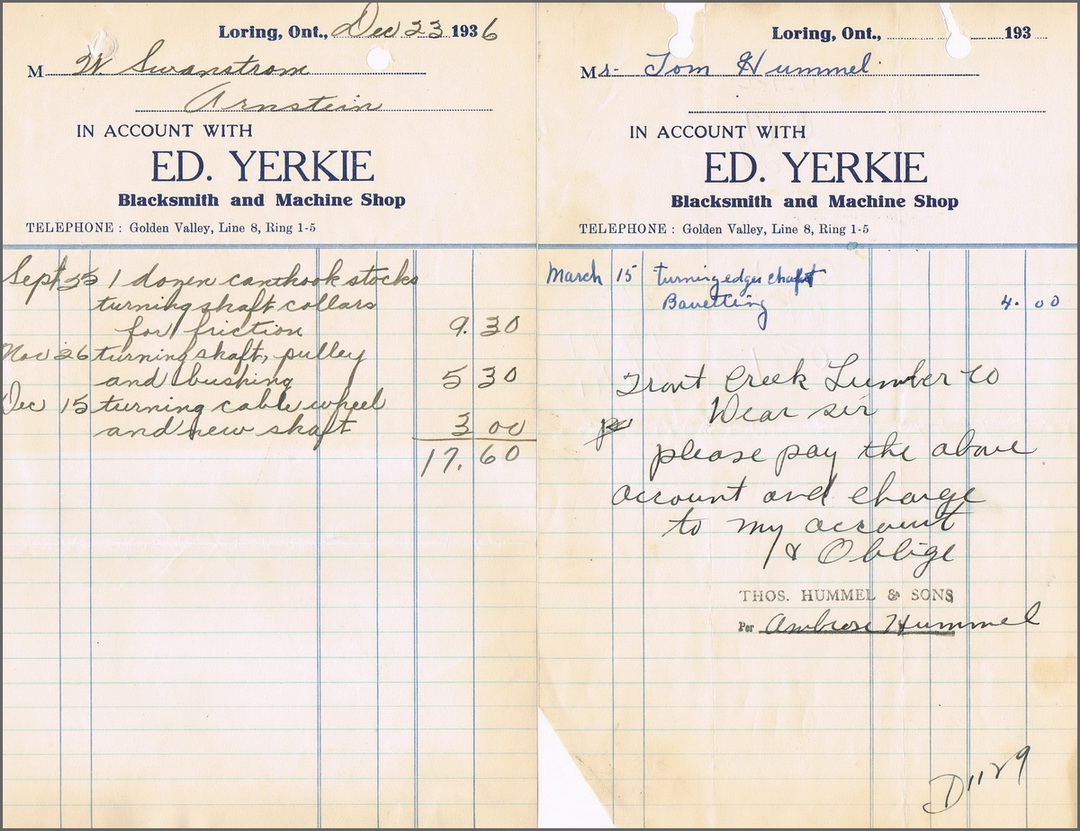 Loring, Ont., Dec 23 1936
M W. Swanstrom
Arnstein
IN ACCOUNT WITH
ED. YERKIE
Blacksmith and Machine Shop
TELEPHONE : Golden Valley, Line 8, Ring 1-5
Sept 25 1 dozen canthook stocks
turning shaft collars
for friction 9. 30
Nov 26 turning shaft, pulley
and bushing 5 30
Dec 15 turning cable wheel
and new shaft 3 00
17. 60
Loring, Ont., 193
Mr- Tom Hummel
IN ACCOUNT WITH
ED. YERKIE
Blacksmith and Machine Shop
TELEPHONE : Golden Valley, Line 8, Ring 1-5
March 15 turning edger shaft
4. 00
Trout Creek Lumber Co
Dear sir
please pay the above
account and charge
to my account
& Oblige
THOS. HUMMEL & SONS
Per Ambrose Hummel
D1129